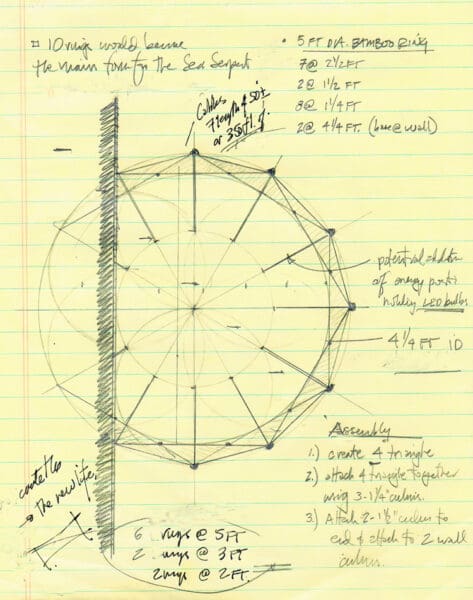 10 rings would become
the main form for the Sea Serpent
• 5 FT DIA. BAMBOO RING
7 @ 2 1/2 FT
2 @ 1 1/2 FT
8 @ 1 1/4 FT
2 @ 4 1/4 FT. (base @ wall)
Cables
7 length @ 50±
or 350 ft.
potential addition
of energy ports
holding LED bulbs
4 1/4 FT ID
Assembly
1.) create 4 triangle
2.) attach 4 triangle together
using 3-1 1/4" culms.
3.) Attach 2-1 1/2" culms to
end & attach to 2 wall
culms.
the new life.
6 rings @ 5 FT
2 rings @ 3 FT
2 rings @ 2 FT.